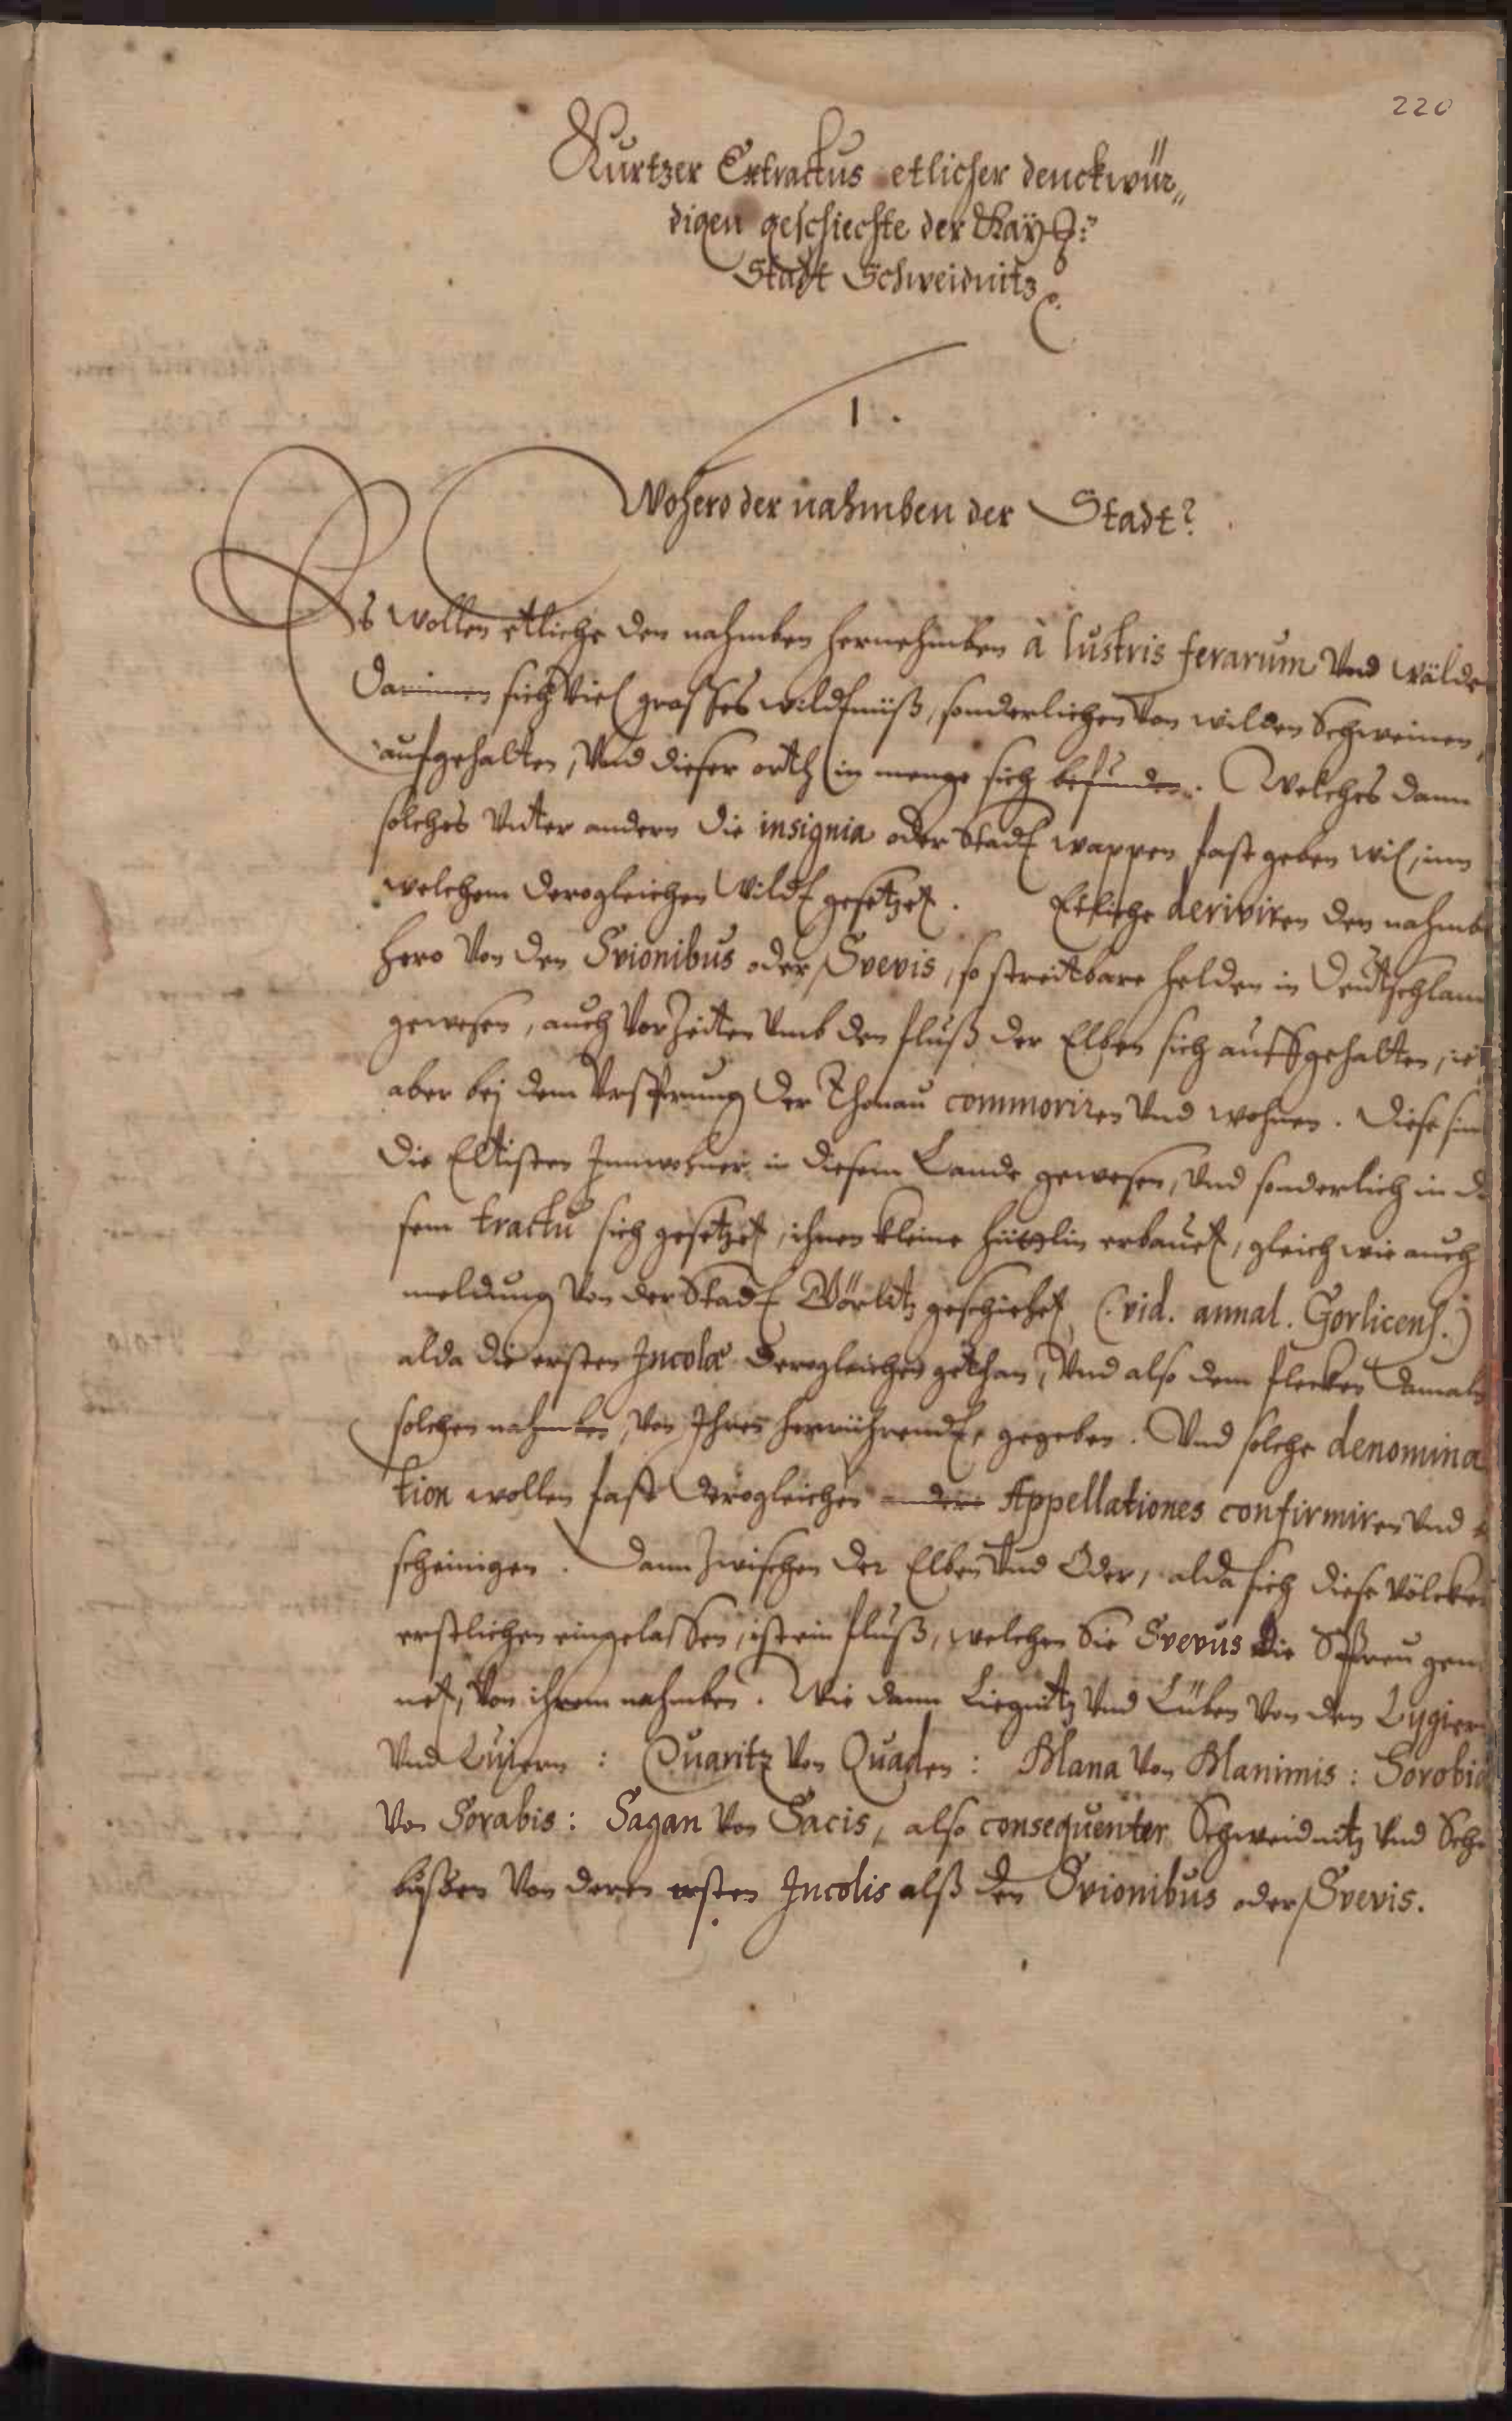 220
Kurtzer Extractus etlicher denckwür„
digen geschiechte der Kayß:
Stadt Schweidnitz
1.
Wohero der nahmben der Stadt?
Es wollen etliche den nahmben hernehmben à lustris ferarum Vnd wälde
Darinnen sich Viel grosses wildtnüß, sonderlichen Von wilden Schweinen,
aufgehalten, Vnd dieser orth in menge sich befunden. Welches dann
solches Vnter andern die insignia oder Stadt wappen fast geben wil, inn
welchem derogleichen Wildt gesetzet. Etliche deriviren den nahmb
hero Von den Svionibus oder Svevis, so streitbare helden in Deutschlan
gewesen, auch Vor Zeiten Vmb den fluß der Elben sich auffgehalten, ie
aber bej dem Vrsprung der Thonau commoriren Vnd wohnen. Diese sin
die Eltisten Innwohner in diesem Lande gewesen, Vnd sonderlich in di
sem tractu sich gesetzet, ihnen kleine hützlin erbauet, gleich wie auch
meldung Von der Stadt Görlitz geschiehet (vid. annal. Gorlicens.)
alda die ersten Incolæ derogleichen gethan, Vnd also dem flecken damals
solchen nahmben, Von Ihnen herrührendt, gegeben. Vnd solche denomina
tion wollen fast derogleichen andere Appellationes confirmiren Vnd
scheinigen. Dann Zwischen der Elben Vnd Oder, alda sich diese Völcker
erstlichen eingelassen, ist ein fluß, welchen Sie Svevus die Spreu gen
net, Von ihrem nahmben. Wie dann Liegnitz Vnd Lüben Von den Lygiern
Vnd Luiern: Quaritz Von Quaden: Mana Von Manimis: Sorobia
Von Sorabis: Sagan Von Sacis, also consequenter Schweidnitz Vnd Sch
bussen Von deren ersten Incolis alß den Svionibus oder Svevis.